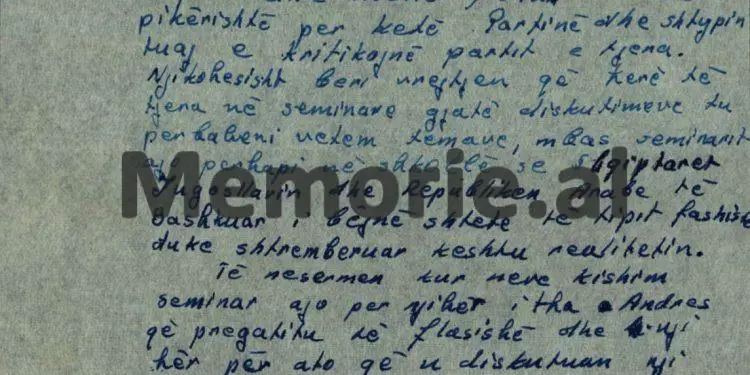 pikërisht per ketë Partinë dhe shtypin
tuaj e kritikojnë partit e tjera.
Njikohesisht beri vrejtjen që herë të
tjera në seminare gjatë diskutimeve tu
permbaheni vetem temave, mbas seminarit
ajo perhapi në shkollë se Shqiptaret
Jugosllavin dhe Republiken Arabe të
Bashkuar i bëjnë shtete të tipit fashist
duke shtremberuar keshtu realitetin.
Të nesermen kur neve kishim
seminar ajo per njiher i tha Andres
që pregatitu të flasishë dhe nji
hër për ato që u diskutuan nji
Memorie.al